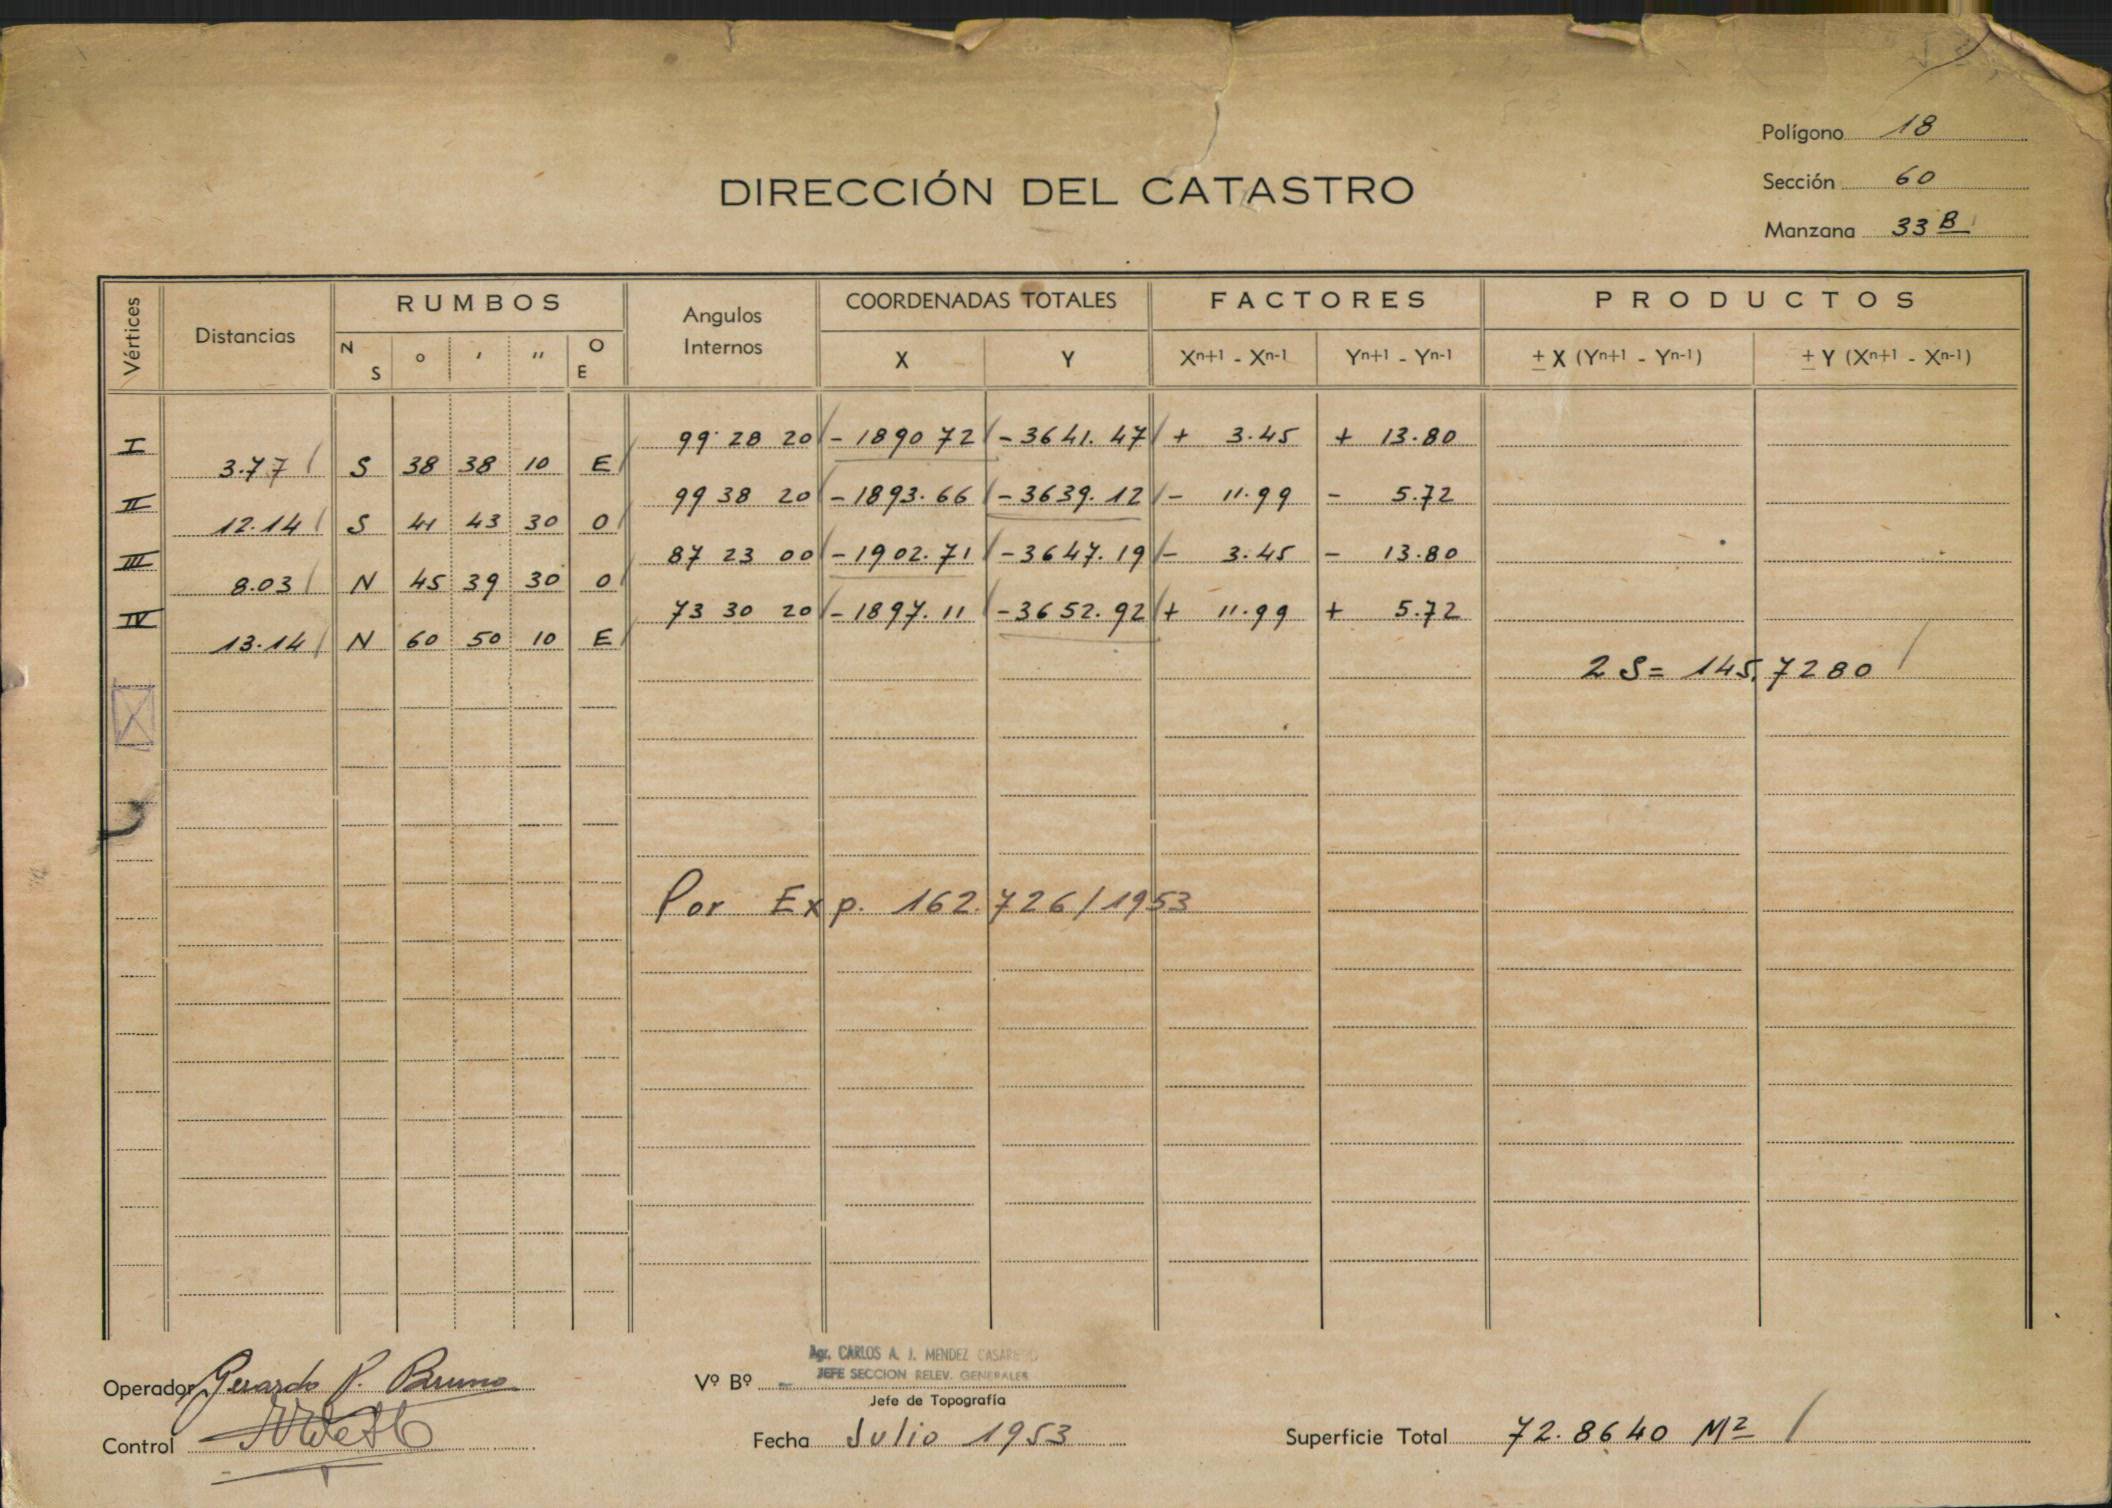 Polígono 18
DIRECCIÓN DEL CATASTRO
Sección 60
Manzana 33 B
Vértices Distancias RUMBOS Angulos Internos COORDENADAS TOTALES FACTORES PRODUCTOS
N S ° ' '' O E X Y Xn+1 - Xn-1 Yn+1 - Yn-1 ± X (Yn+1 - Yn-1) ± Y (Xn+1 - Xn-1)
I 99 28 20 - 1890 72 - 3641.47 + 3.45 + 13.80
3.77 S 38 38 10 E
II 99 38 20 - 1893.66 - 3639.12 - 11.99 - 5.72
12.14 S 41 43 30 O
III 87 23 00 - 1902.71 - 3647.19 - 3.45 - 13.80
8.03 N 45 39 30 O
IV 73 30 20 - 1897.11 - 3652.92 + 11.99 + 5.72
13.14 N 60 50 10 E
2 S = 145,7280
Por Exp. 162.726/1953
Agr. CARLOS A. J. MENDEZ
Operador Gerardo P. Bruno Vº Bº JEFE SECCION RELEV. GENERALES
Jefe de Topografía
Control Fecha Julio 1953 Superficie Total 72.8640 M²